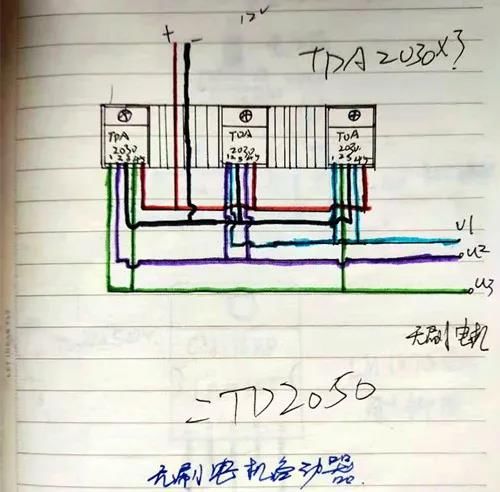 12V
+ -
TDA2030X3
TDA
2030
1 2 3 4 5
TDA
2030
1 2 3 4 5
TDA
2030
1 2 3 4 5
U1
U2
U3
无刷电机
=TD2050
无刷电机启动器